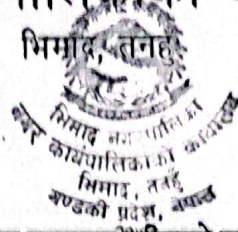 भिमाद, तनहुँ
भिमाद नगरपालिका
नगर कार्यपालिकाको कार्यालय
भिमाद, तनहुँ
गण्डकी प्रदेश, नेपाल